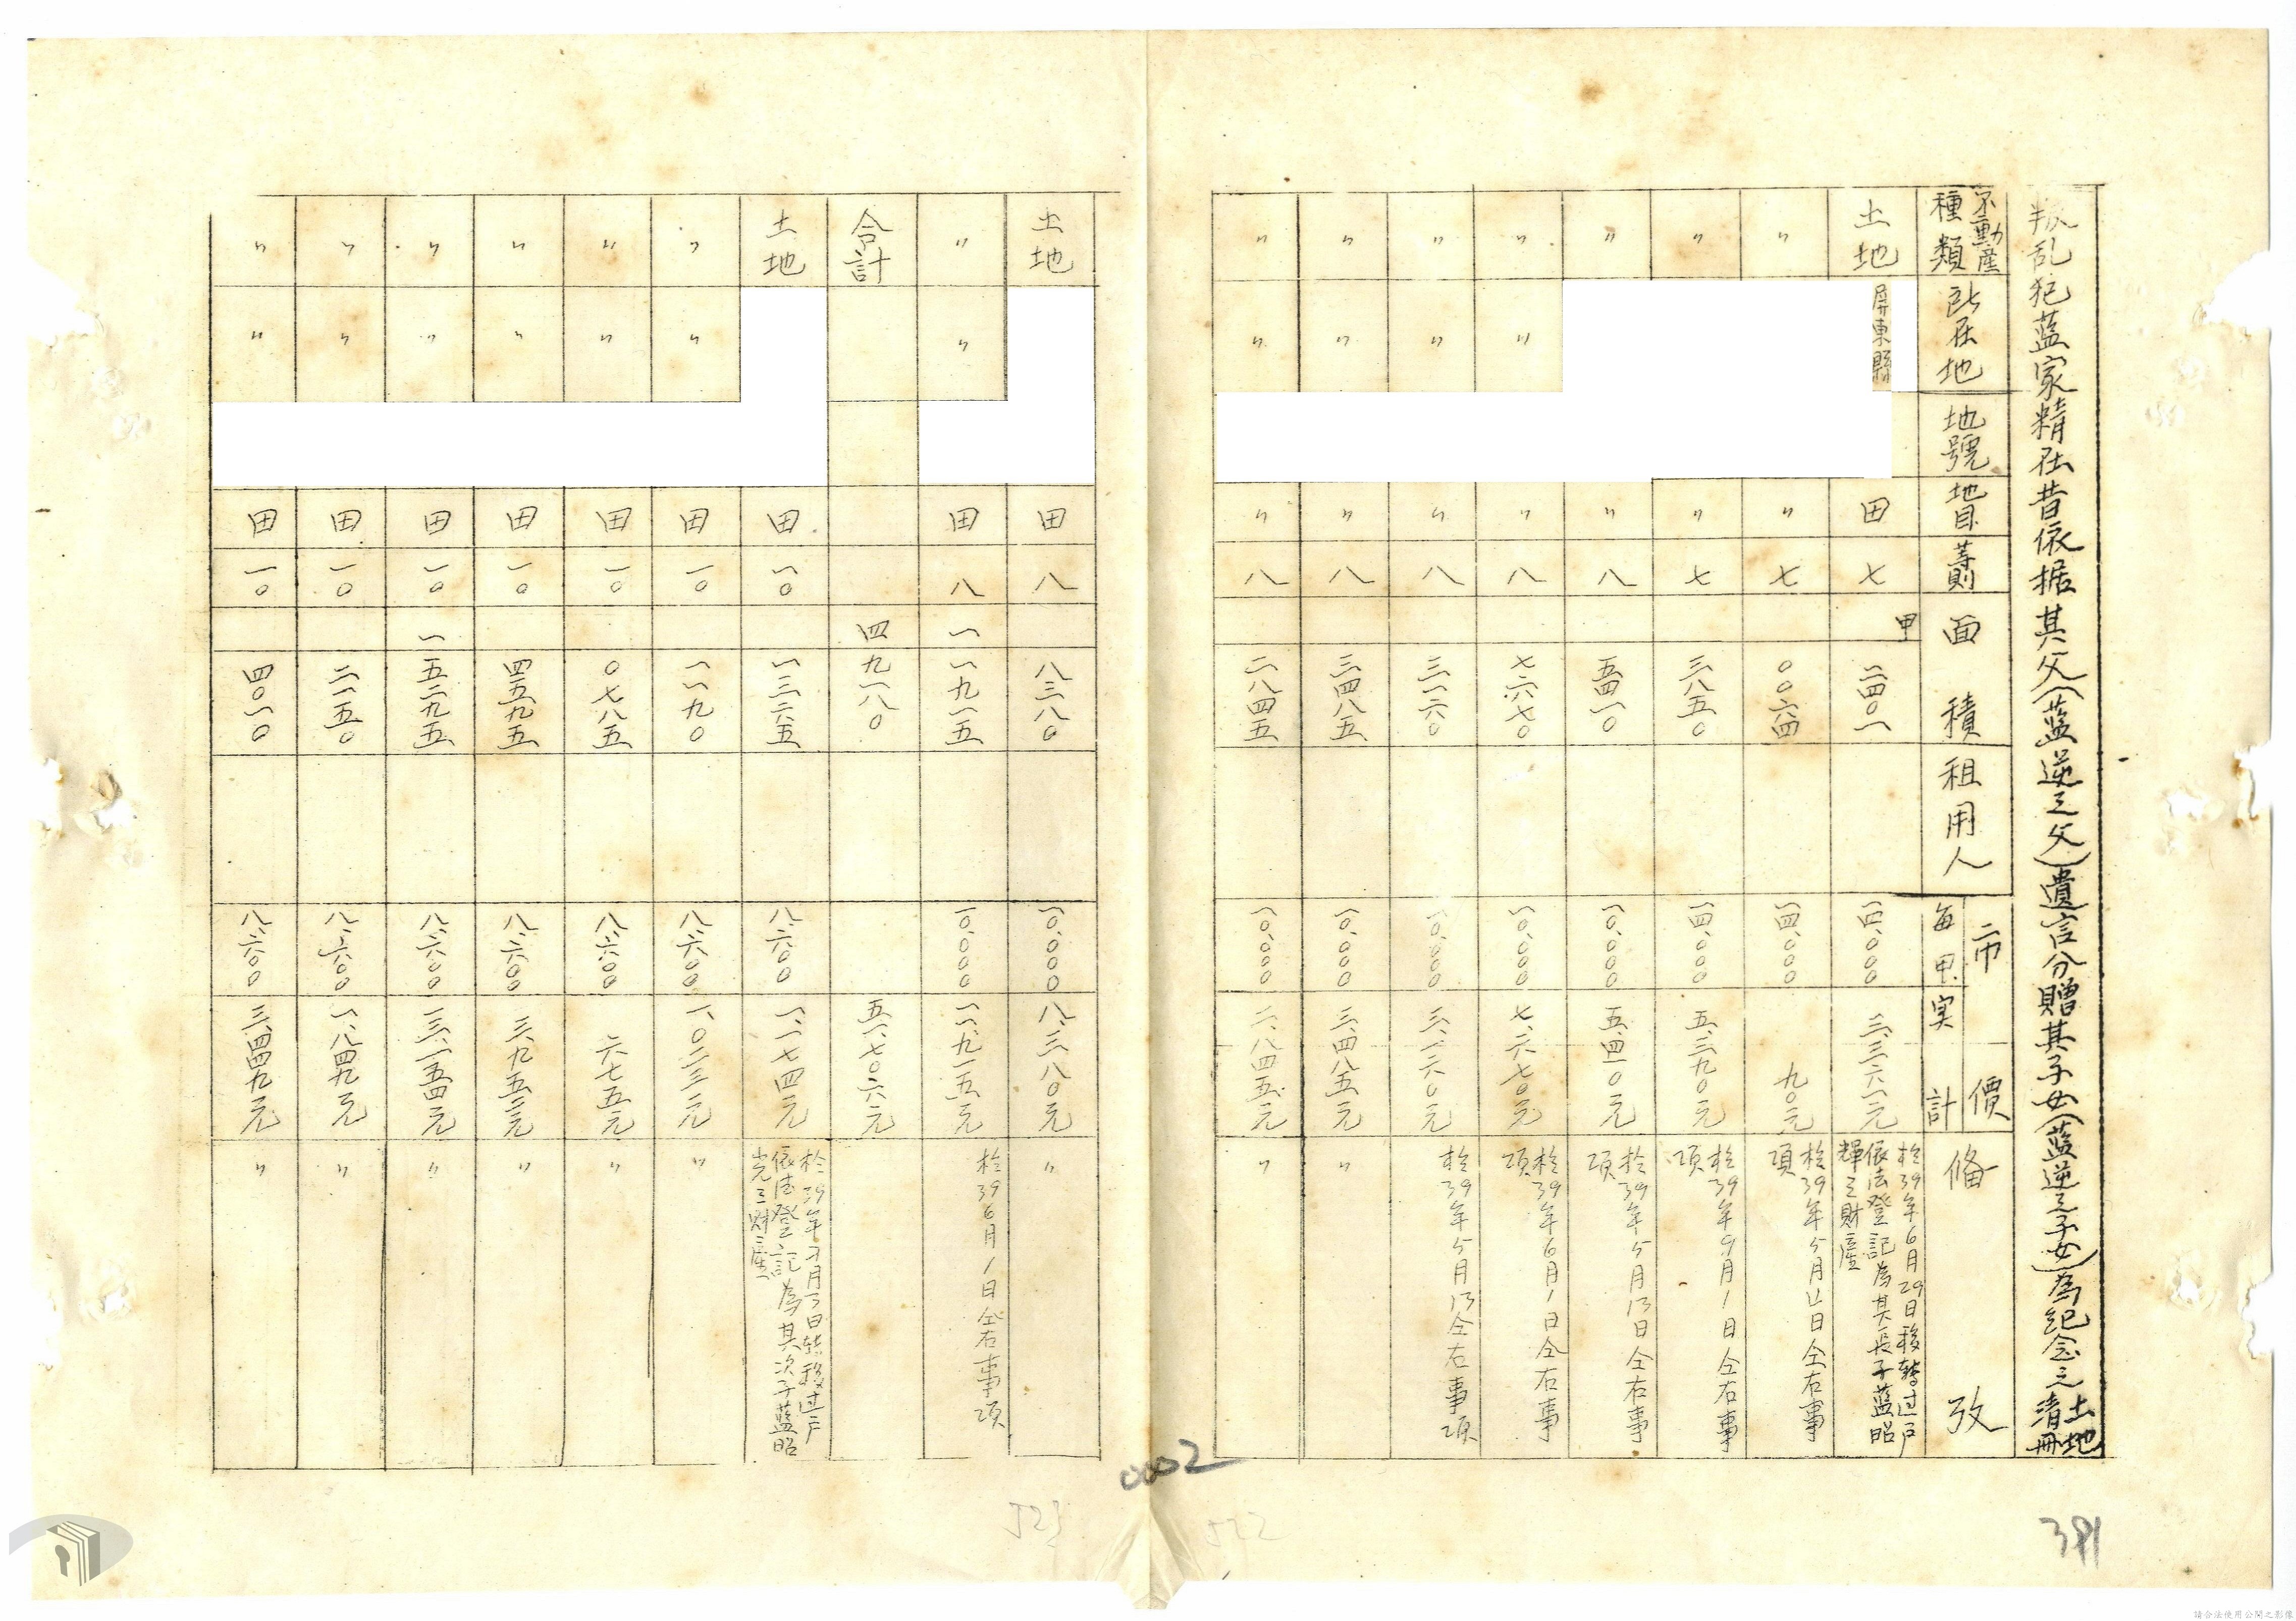 叛乱犯蓝家精在昔依据其父(蓝逆之父)遺言分贈其子女(蓝逆之子女)為紀念之土地清冊
不動産種類 所在地 地號 地目 等則 面積 租用人 市價 每甲 実計 俻攷
土地 屏東縣 田 七 甲 二四〇一 一四、〇〇〇 三、三六一元 於39年6月29日移轉过户依法登記為其長子蓝昭輝之財産
〃 〃 七 〇〇六四 一四、〇〇〇 九〇元 於39年5月日仝右事項
〃 〃 七 三八五〇 一四、〇〇〇 五、三九〇元 於39年9月1日仝右事項
〃 〃 八 五四一〇 一〇、〇〇〇 五、四一〇元 於39年5月13日仝右事項
〃 〃 〃 八 七六七〇 一〇、〇〇〇 七、六七〇元 於39年6月1日仝右事項
〃 〃 〃 八 三一六〇 一〇、〇〇〇 三、一六〇元 於39年5月13仝右事項
〃 〃 〃 八 三四八五 一〇、〇〇〇 三、四八五元 〃
〃 〃 〃 八 二八四五 一〇、〇〇〇 二、八四五元 〃
土地 田 八 八三八〇 一〇、〇〇〇 八、三八〇元 〃
〃 〃 田 八 一 一九一五 一〇、〇〇〇 一一、九一五元 於39 6月1日仝右事項
合計 四 九一八〇 五一、七〇六元
土地 田 一〇 一三六五 八、六〇〇 一、一七四元 於39年月日转移过户依法登記為其次子蓝昭光之财産
〃 〃 田 一〇 一一九〇 八、六〇〇 一、〇二三元 〃
〃 〃 田 一〇 〇七八五 八、六〇〇 六七五元 〃
〃 〃 田 一〇 四五九五 八、六〇〇 三、九五二元 〃
〃 〃 田 一〇 一 五二九五 八、六〇〇 一三、一五四元 〃
〃 〃 田 一〇 二一五〇 八、六〇〇 一、八四九元 〃
〃 〃 田 一〇 四〇一〇 八、六〇〇 三、四四九元 〃
0002
523
522
391
請合法使用公開之影像